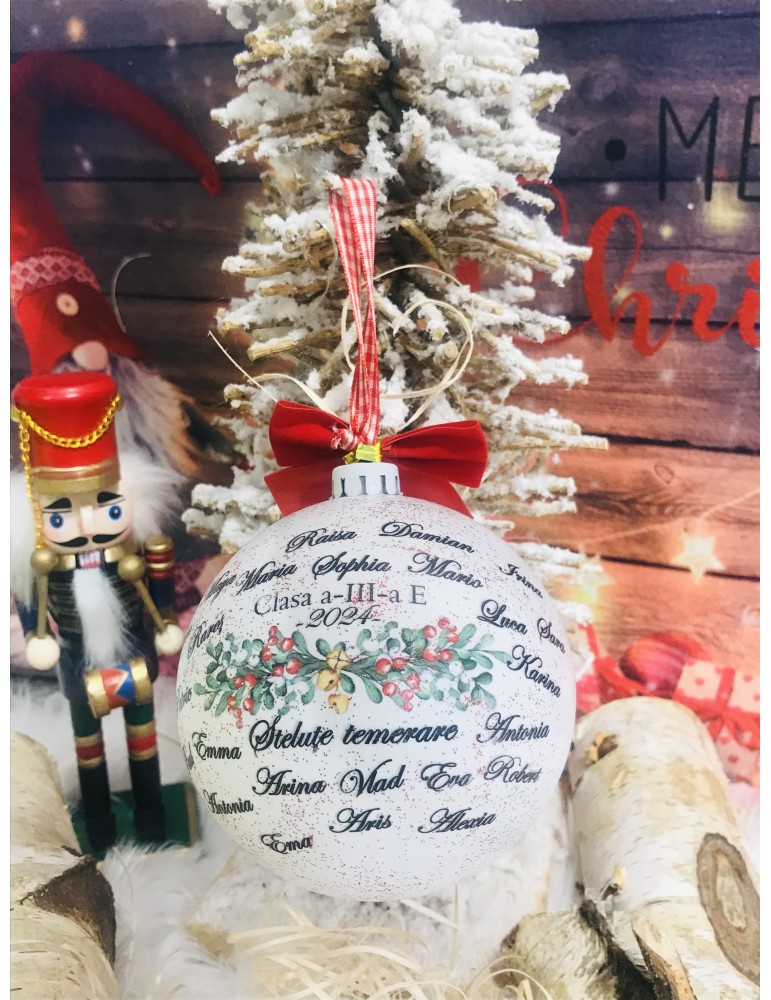 ME
Chri
Raisa Damian
Maria Sophia Mario Irina
Clasa a-III-a E
-2024-
Luca Sara
Rareș
Karina
Emma Steluțe temerare Antonia
Arina Vlad Eva Robert
Antonia
Aris Alexia
Ema